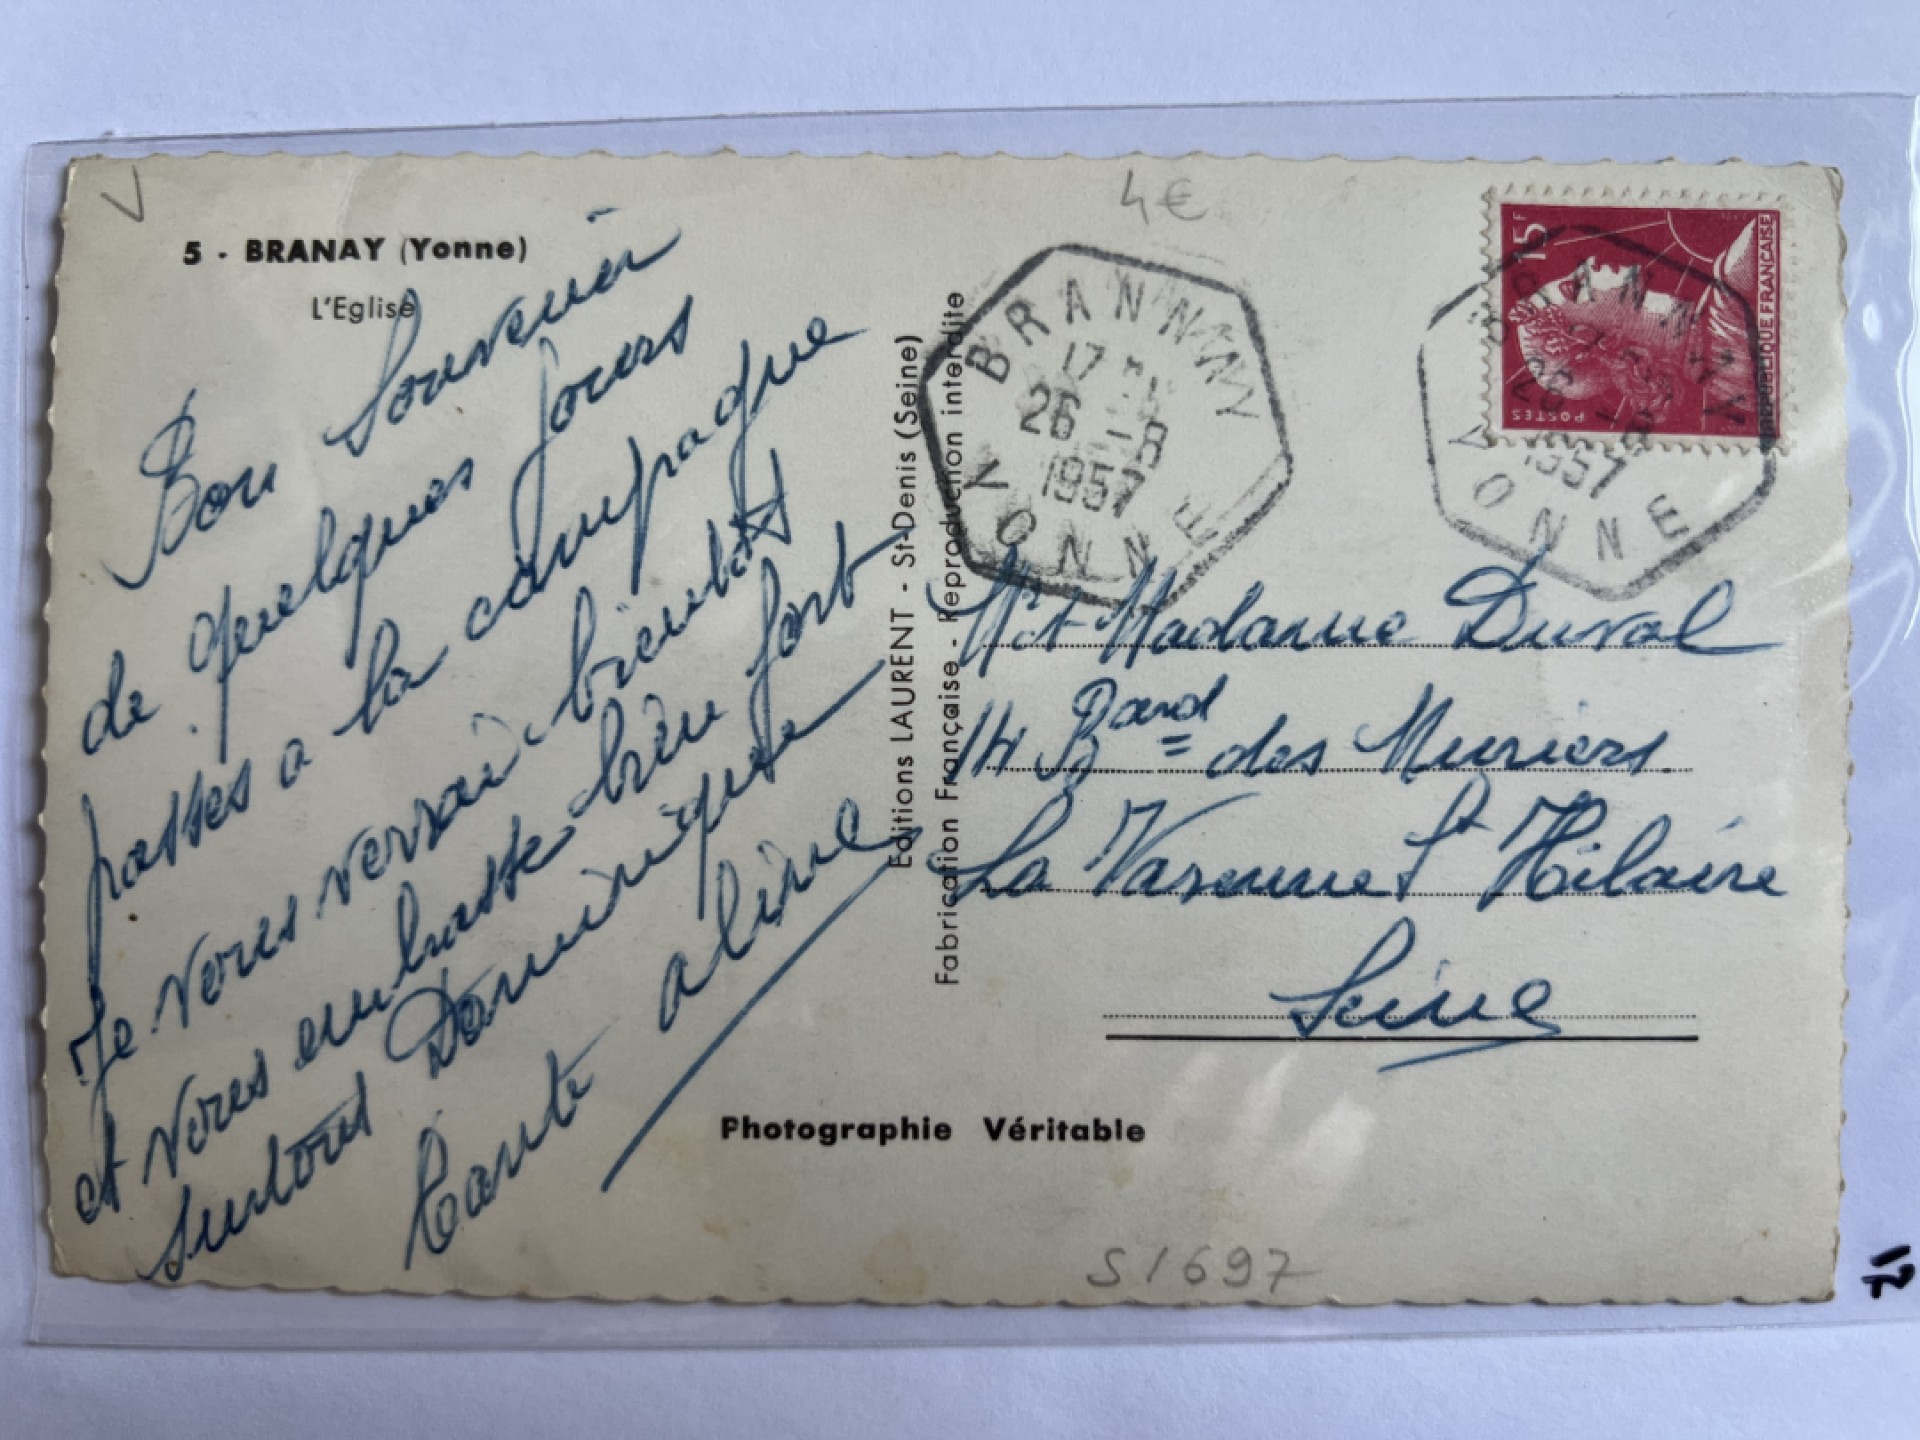 V
4€
5 - BRANAY (Yonne)
L'Eglise
Bon souvenir
de quelques jours
passes a la campagne
Je vous verrai bientot
et vous embrasse bien fort
surtout Dominique
tante aline
Editions LAURENT - St-Denis (Seine)
Fabrication Française - Reproduction interdite
BRANNAY
17
26 - 8
1957
YONNE
15F
POSTES
REPUBLIQUE FRANÇAISE
BRANNAY
26 - 8
1957
YONNE
Mr et Madame Duval
14 Bard des Muriers
La Varenne St Hilaire
Seine
Photographie Véritable
S1697
12